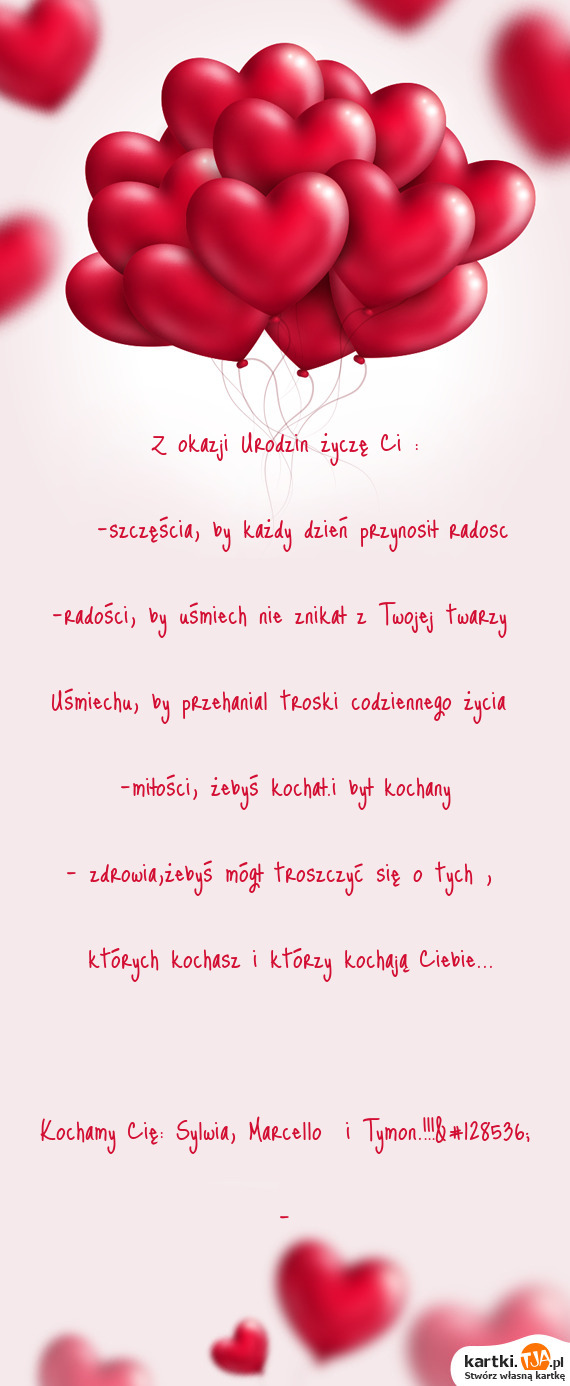 Z okazji Urodzin życzę Ci :
-szczęścia, by każdy dzień przynosił radosc
-radości, by uśmiech nie znikał z Twojej twarzy
Uśmiechu, by przehanial troski codziennego życia
-miłości, żebyś kochał.i był kochany
- zdrowia,żebyś mógł troszczyć się o tych ,
których kochasz i którzy kochają Ciebie...
Kochamy Cię: Sylwia, Marcello i Tymon.!!!&#128536;
-
kartki.TJA.pl
Stwórz własną kartkę